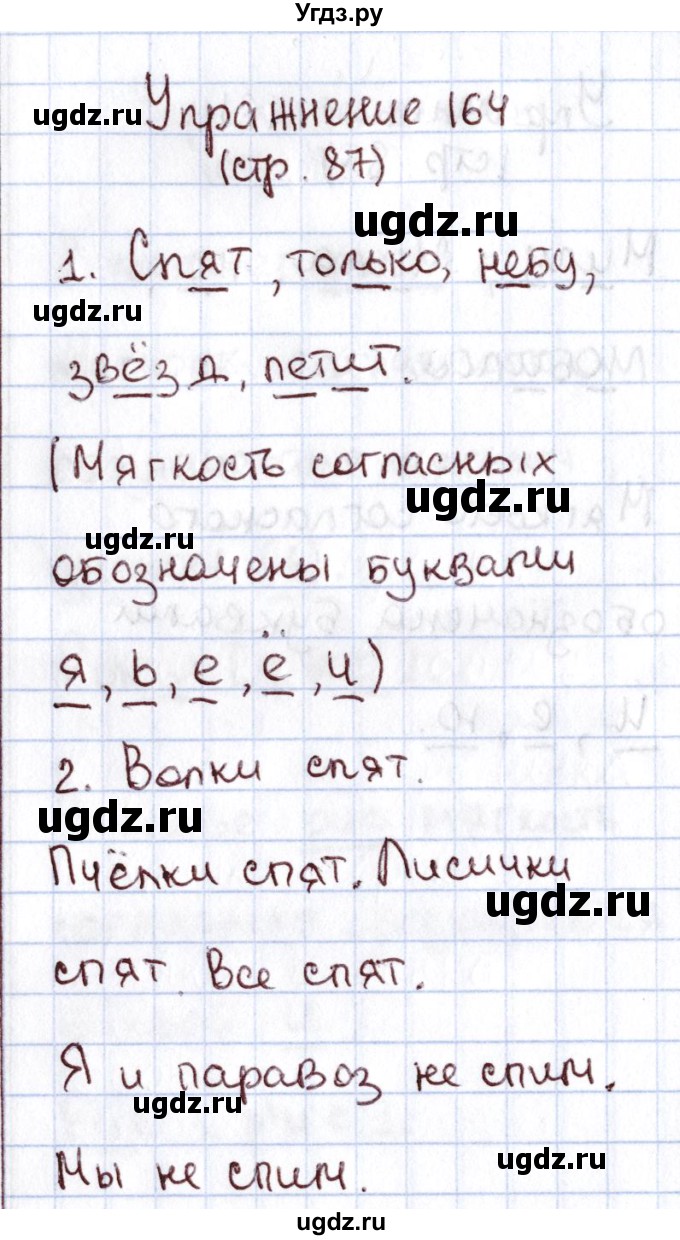 Угдз.ру
Упражнение 164
ugdz.ru
(стр. 87)
ugdz.ru
1. Спят, только, небу,
ugdz.ru
звёзд, летит.
(Мягкость согласных
ugdz.ru
ugdz.ru
обозначены буквами
я, ь, е, ё, и)
2. Волки спят.
ugdz.ru
Пчёлки спят. Лисички
ugdz.ru
спят. Все спят.
Я и паравоз не спим.
ugdz.ru
Мы не спим.
ugdz.ru
ugdz.ru